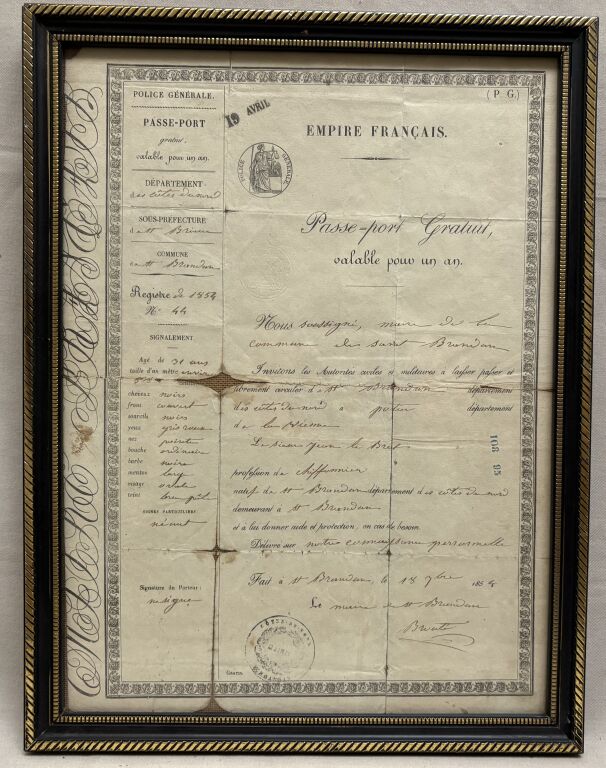 POLICE GÉNÉRALE.
PASSE-PORT
gratuit,
valable pour un an.
DÉPARTEMENT
des côtes du nord
SOUS-PRÉFECTURE
de St Brieuc
COMMUNE
de St Brandan
Registre de 1854
N° 44
SIGNALEMENT.
Agé de 31 ans
taille d'un mètre
cheveux noirs
front couvert
sourcils noirs
yeux gris roux
nez pointu
bouche ordinaire
barbe noire
menton large
visage ovale
teint
SIGNES PARTICULIERS
néant
Signature du Porteur:
ne signe
19 AVRIL
(P G.)
EMPIRE FRANÇAIS.
POLICE GÉNÉRALE
Passe-port Gratuit,
valable pour un an.
Nous soussigné, maire de la
commune de saint Brandan
Invitons les Autorités civiles et militaires à laisser passer et
librement circuler d St Brandan département
des côtes du nord à département
de la
Le sieur le Bret
profession de Chiffonnier
natif de St Brandan département des côtes du nord
demeurant à St Brandan
et à lui donner aide et protection, en cas de besoin.
Délivré sur notre connaissance personnelle
Fait à St Brandan, le 18 7bre 1854
Le maire de St Brandan
108 95